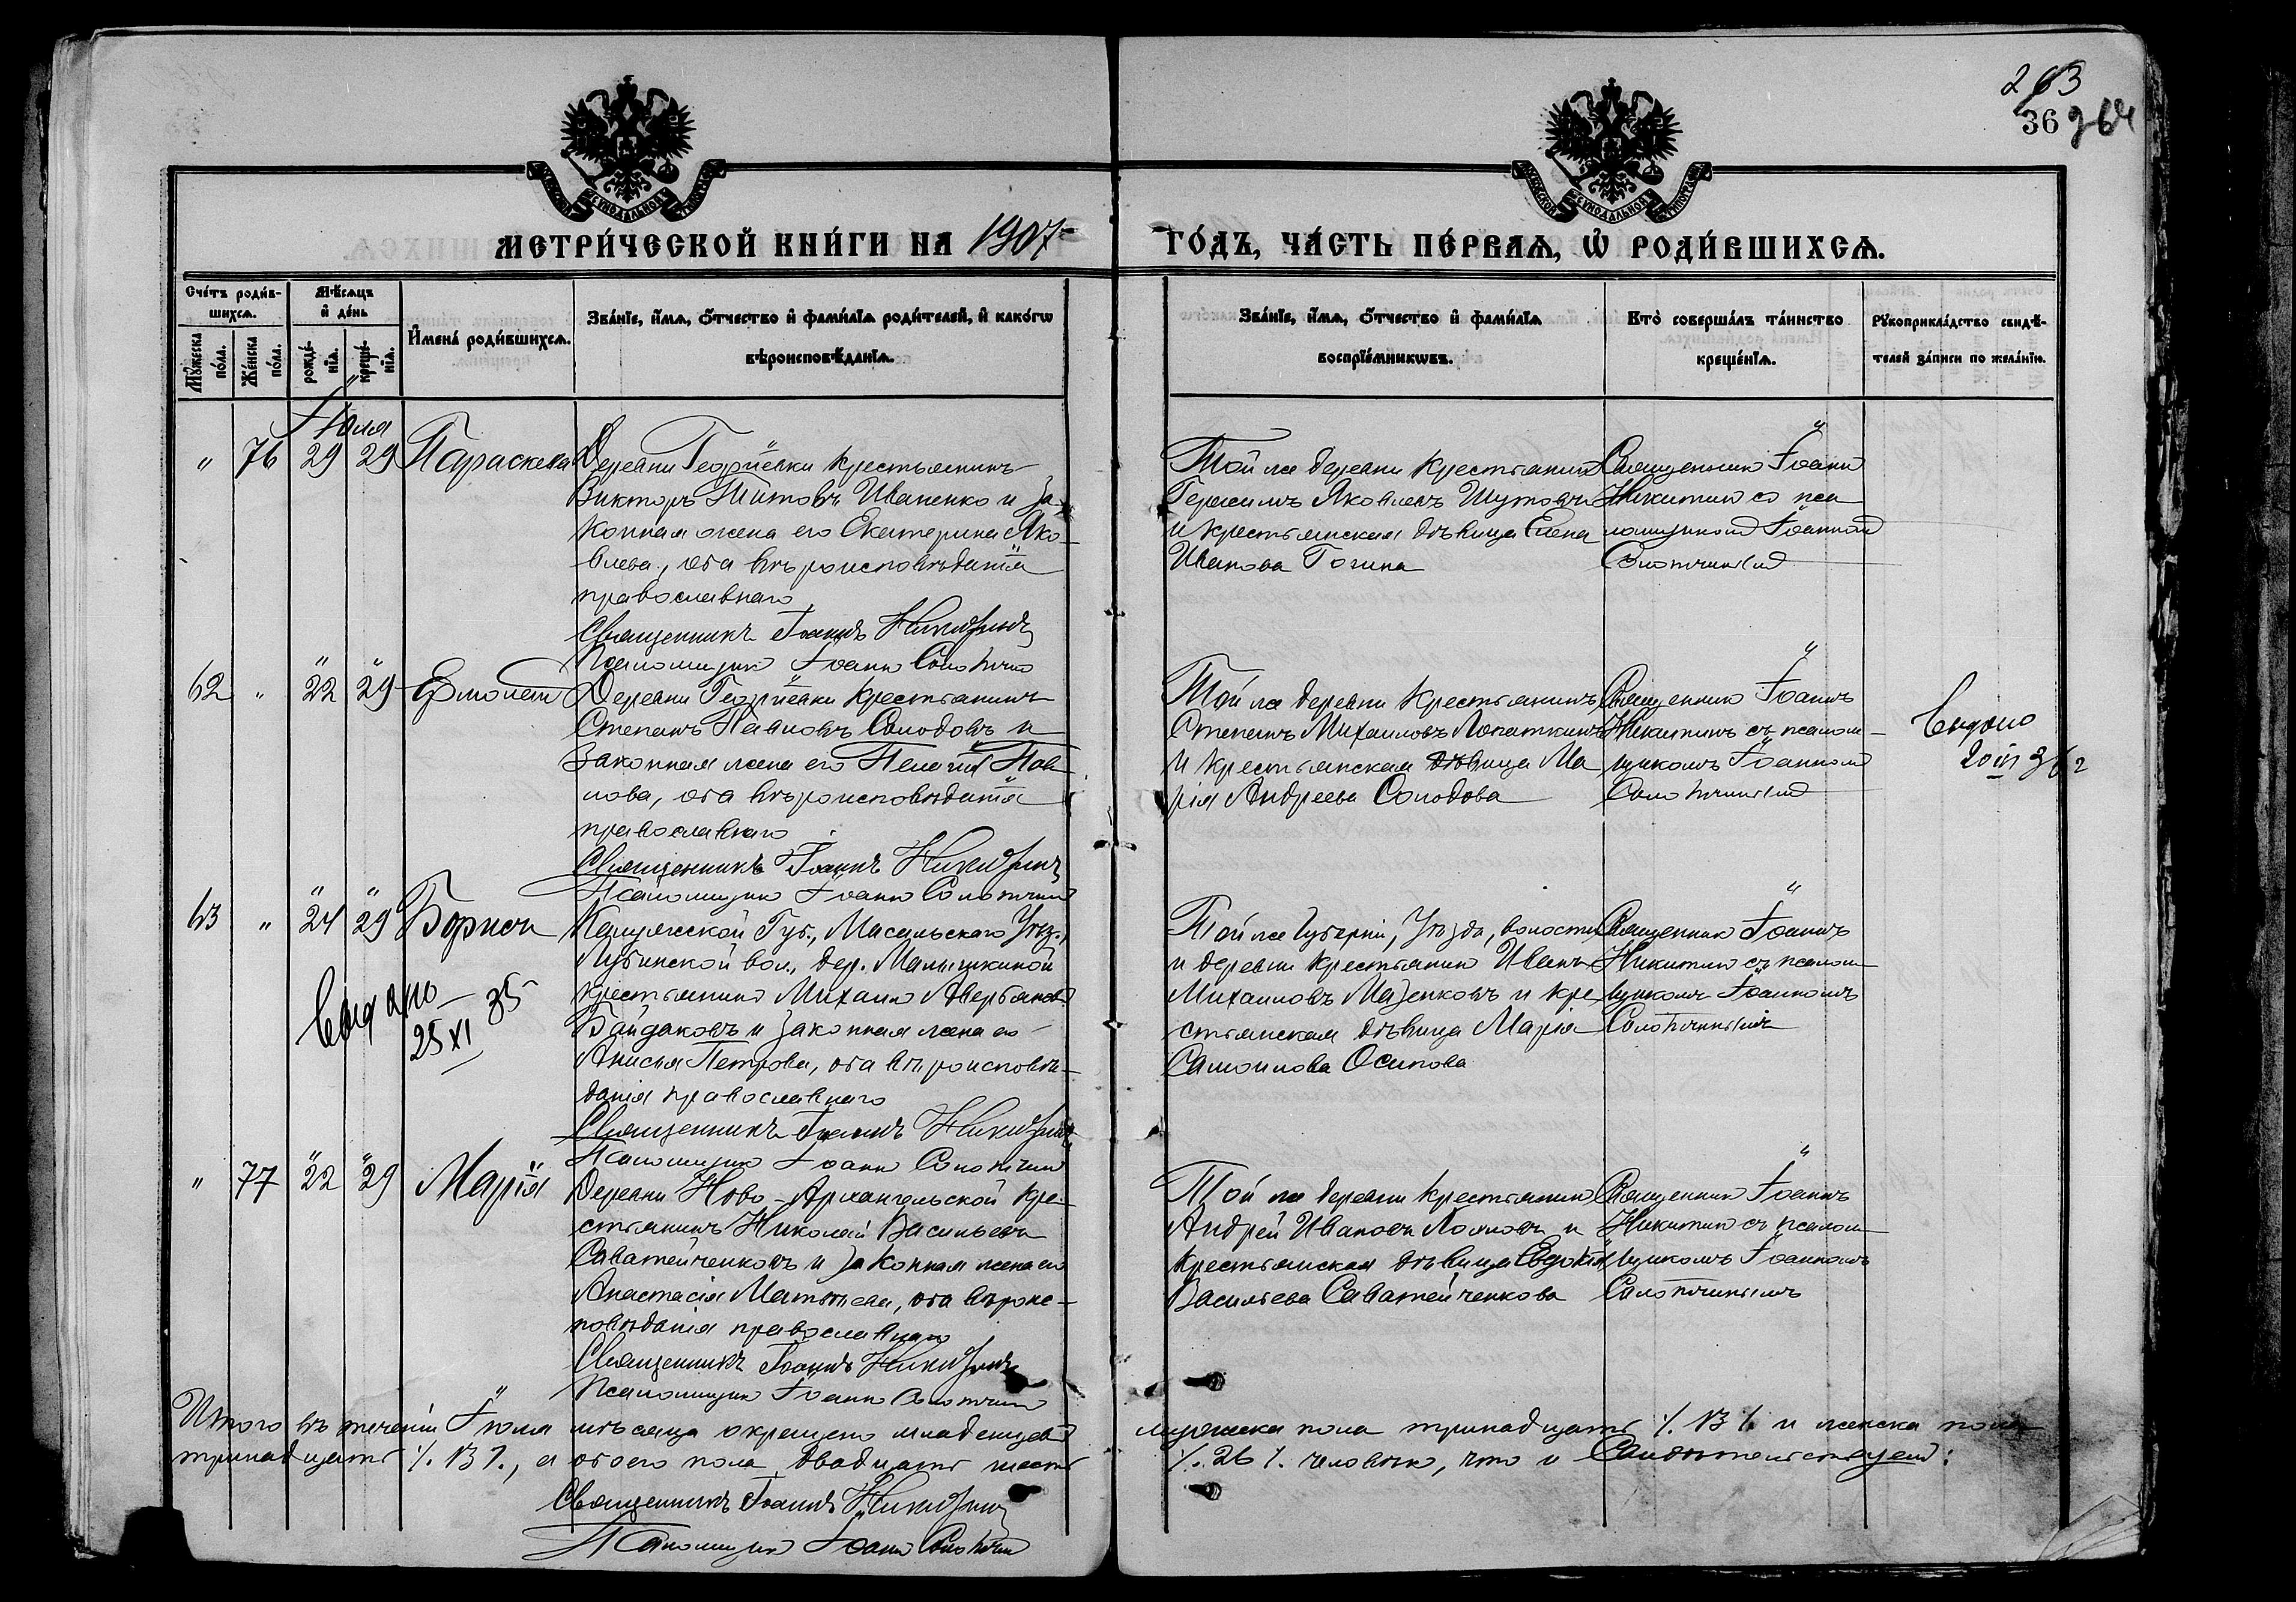 263
36 264
МЕТРИ́ЧЕСКОЙ КНИ́ГИ НА 1907
ГО́ДЪ, ЧА́СТЬ ПЕ́РВАѦ, Ѡ҆ РОДИ́ВШИХСѦ.
Сче́тъ роди́в-
шихсѧ.
Мꙋ́жеска по́ла.
Же́нска по́ла.
Мѣ́сѧцъ
и҆ де́нь
рожде́-
нїѧ.
креще́-
нїѧ.
И҆мена̀ роди́вшихсѧ.
Зва́нїе, и҆́мѧ, ѻ҆́тчество и҆ фами́лїѧ роди́телей, и҆ како́гѡ
вѣроисповѣ́данїѧ.
Зва́нїе, и҆́мѧ, ѻ҆́тчество и҆ фами́лїѧ
воспрїе́мникѡвъ.
Кто̀ соверша́лъ та́инство
креще́нїѧ.
Рꙋкоприкла́дство свидѣ́-
телей за́писи по жела́нїю.
Іюля
" 76 29 29 Параскева
Деревни Георгіевки крестьянинъ
Викторъ Титовъ Иваненко и за-
конная жена его Екатерина Яко-
влева, оба вѣроисповѣданія
православнаго
Священникъ Іоаннъ Никитинъ
Псаломщикъ Іоаннъ
Той же деревни крестьянинъ
Герасимъ Яковлевъ Шутовъ
и крестьянская дѣвица Елена
Иванова Гогина
Священникъ Іоаннъ
Никитинъ со пса
ломщикомъ Іоанномъ
62 " 22 29 Ермолай
Деревни Георгіевки крестьянинъ
Степанъ Павловъ Солодовъ и
законная жена его Пелагія Пав
лова, оба вѣроисповѣданія
православнаго
Священникъ Іоаннъ Никитинъ
Псаломщикъ Іоаннъ
Той же деревни крестьянинъ
Степанъ Михаиловъ Лопаткинъ
и крестьянская дѣвица Ма
рія Андреева Солодова
Священникъ Іоаннъ
Никитинъ съ псалом-
щикомъ Іоанномъ
Выдано
63 " 24 29 Борисъ
Калужской Губ., Масальскаго Уѣз.,
Лубинской вол., дер. Малышкиной
крестьянинъ Михаилъ Аверьяновъ
Байдаковъ и законная жена его
Анисья Петрова, оба вѣроисповѣ-
данія православнаго
Священникъ Іоаннъ Никитинъ
Псаломщикъ Іоаннъ
Выдано
25 XI 35
Той же губерніи, Уѣзда, волости
и деревни крестьянинъ Иванъ
Михаиловъ Мазенковъ и кре
стьянская дѣвица Марія
Самоилова Осипова
Священникъ Іоаннъ
Никитинъ съ псалом
щикомъ Іоанномъ
" 77 22 29 Марія
Деревни Ново-Архангельской кре-
стьянинъ Николай Васильевъ
Саватейченковъ и законная жена его
Анастасія Матвѣева, оба вѣроис-
повѣданія православнаго
Священникъ Іоаннъ Никитинъ
Псаломщикъ Іоаннъ
Той же деревни крестьянинъ
Андрей Ивановъ и
крестьянская дѣвица Евдокія
Васильева Саватейченкова
Священникъ Іоаннъ
Никитинъ съ псалом
щикомъ Іоанномъ
Итого въ теченіи Іюля мѣсяца окрещено младенцевъ мужеска пола тринадцать /. 13 /. и женска пола
тринадцать /. 13 /., а обоего пола двадцать шесть /. 26 /. человѣкъ, что и свидѣтельствуемъ:
Священникъ Іоаннъ Никитинъ
Псаломщикъ Іоаннъ